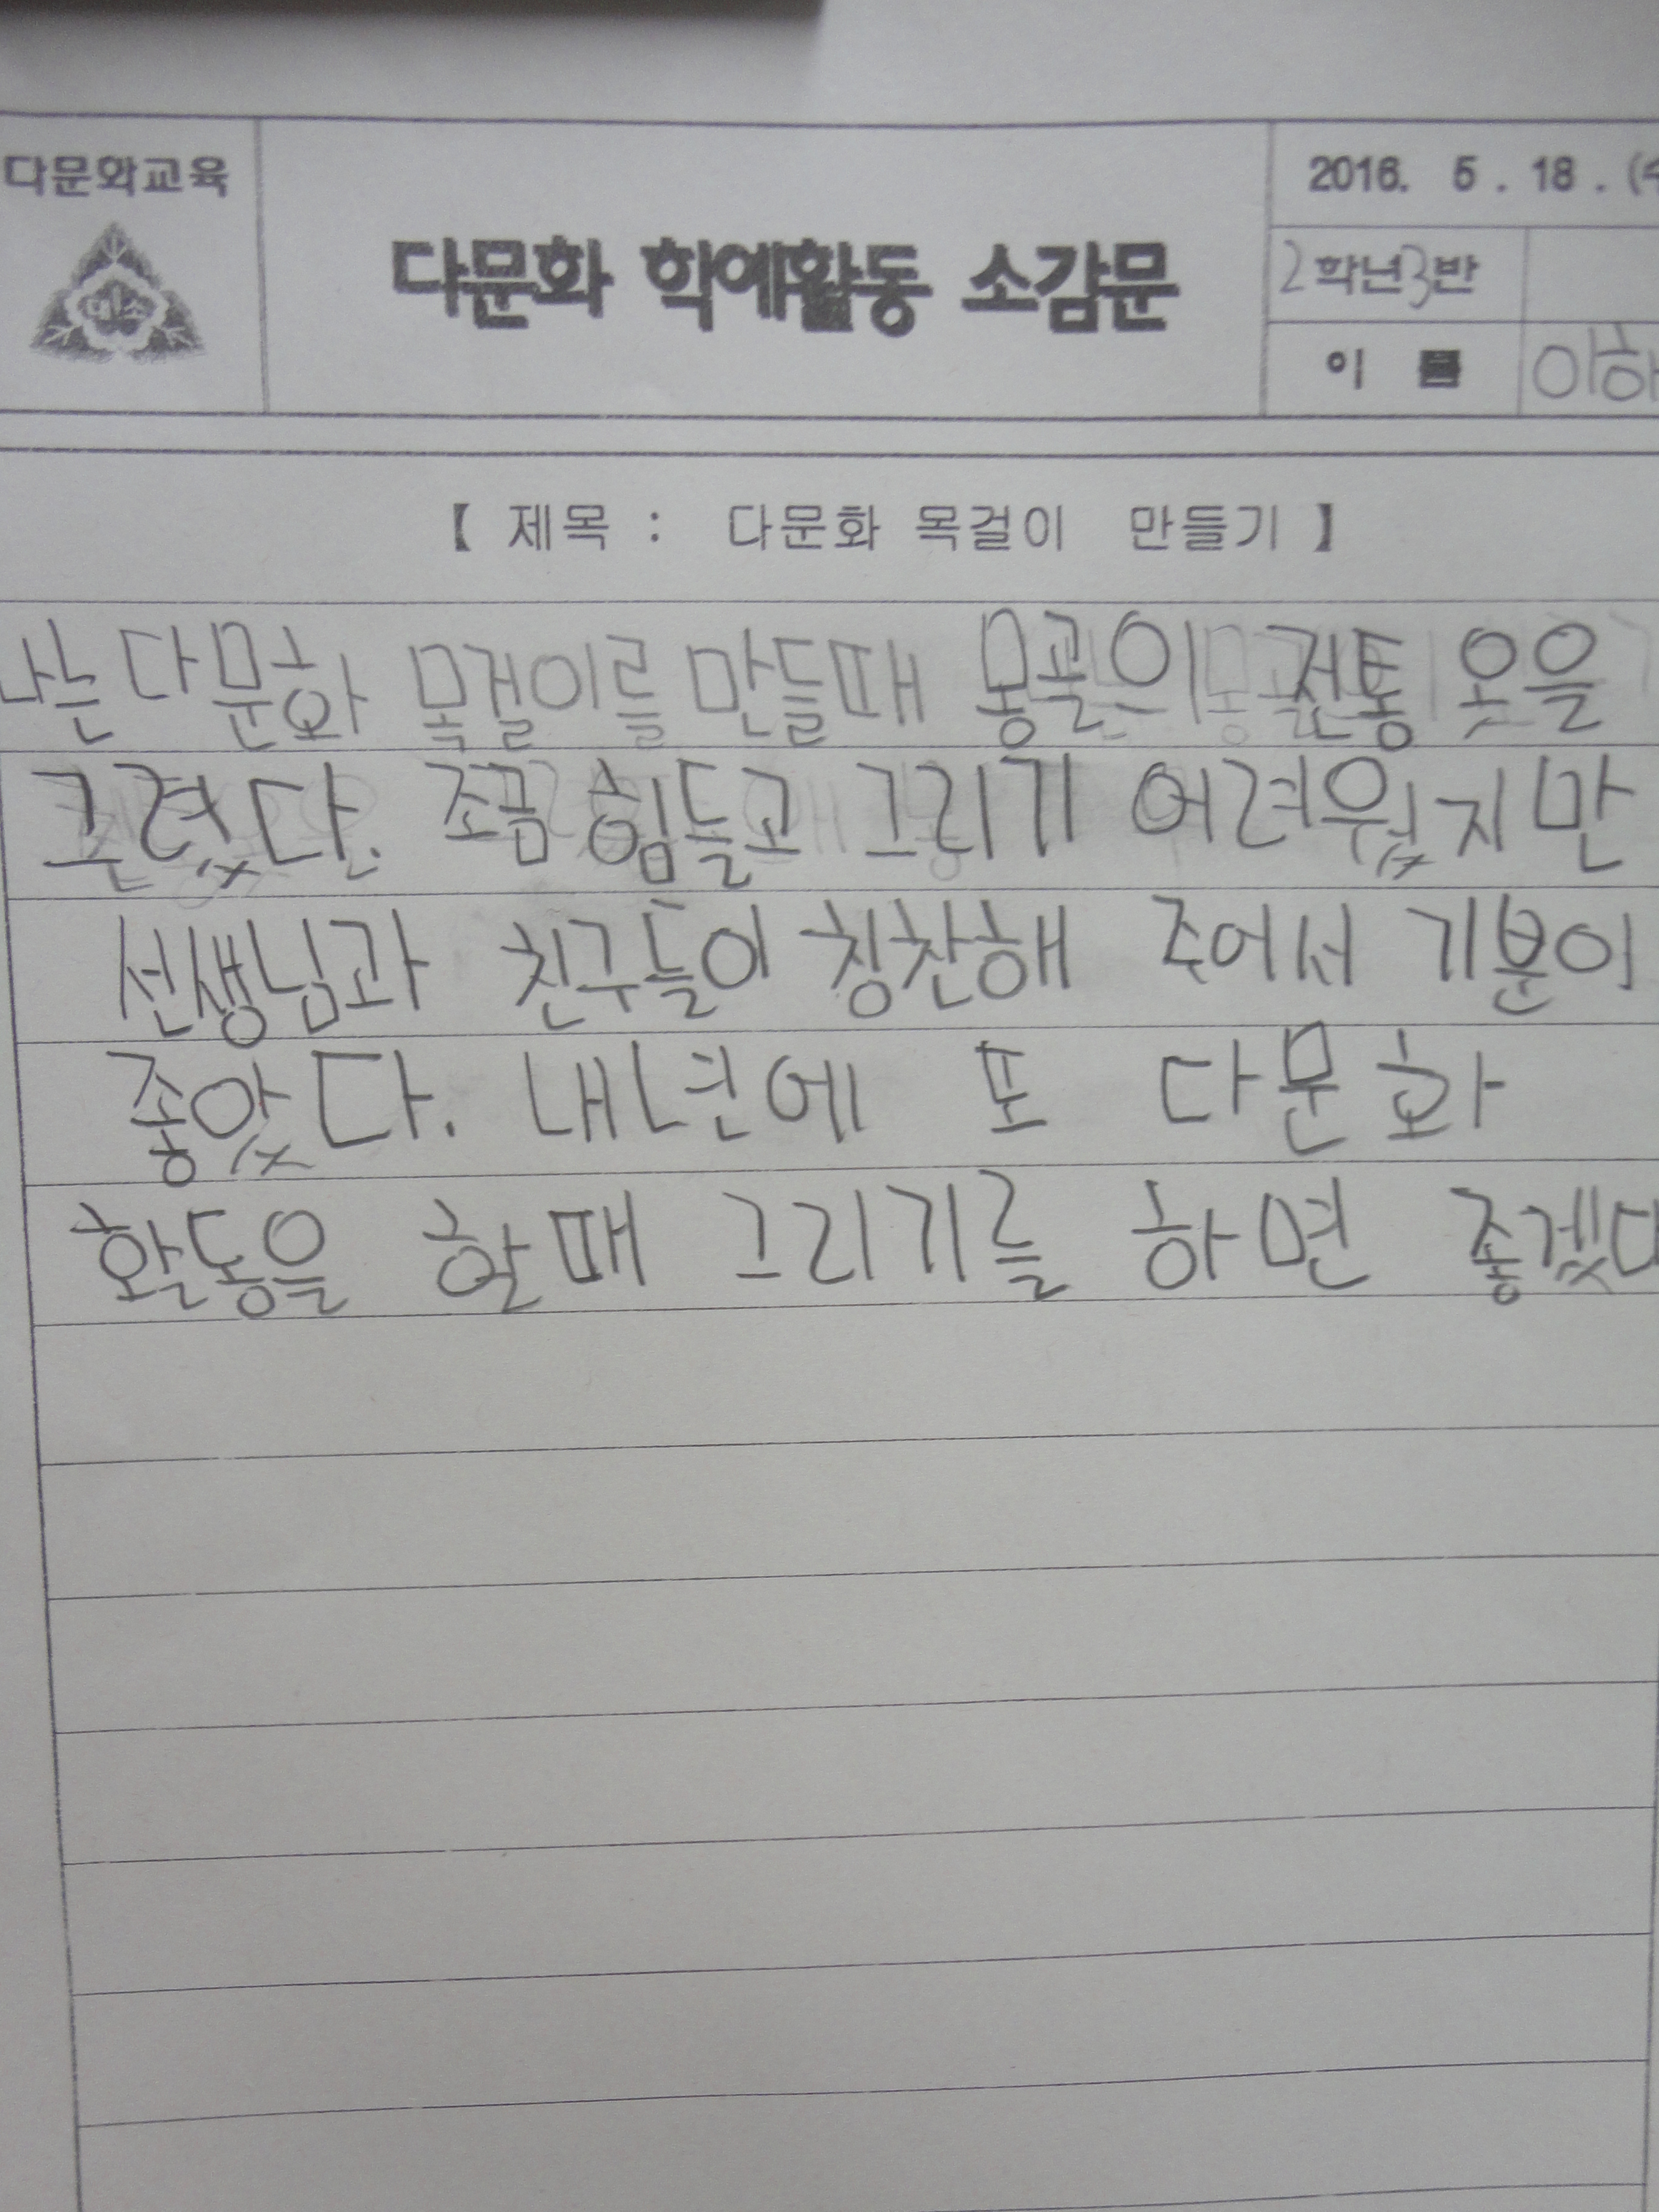 다문화교육
미소
다문화 학예활동 소감문
2016. 5. 18. (수
2학년 3반
이 름 이하
【 제목 : 다문화 목걸이 만들기 】
나는 다문화 목걸이를 만들때 몽골의 전통 옷을
그렸다. 조금 힘들고 그리기 어려웠지만
선생님과 친구들이 칭찬해 주어서 기분이
좋았다. 내년에 또 다문화
활동을 할때 그리기를 하면 좋겠다